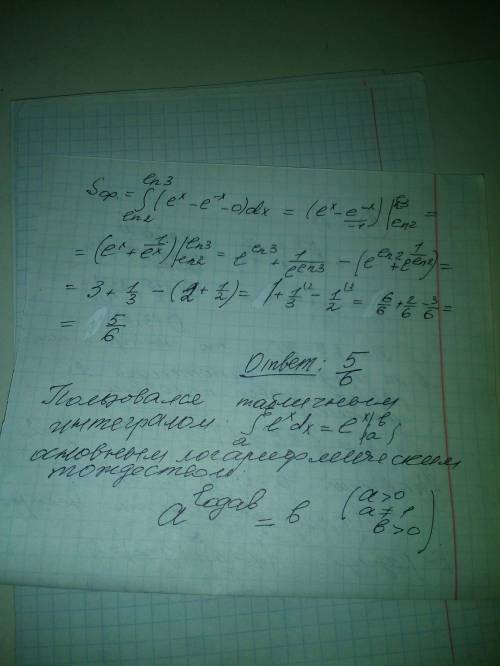 Sф. = ∫_{ln2}^{ln3} (e^x - e^{-x} - 0)dx = (e^x - e^{-x}/-1)|_{ln2}^{ln3} =
= (e^x + 1/e^x)|_{ln2}^{ln3} = e^{ln3} + 1/e^{ln3} - (e^{ln2} + 1/e^{ln2}) =
= 3 + 1/3 - (2 + 1/2) = 1 + 1/3^{(2} - 1/2^{(3} = 6/6 + 2/6 - 3/6 =
= 5/6
Ответ: 5/6
Пользовалась табличным
интегралом ∫_a^b e^x dx = e^x|_a^b ;
основным логарифмическим
тождеством.
a^{log_a b} = b (a>0 a≠1 b>0)